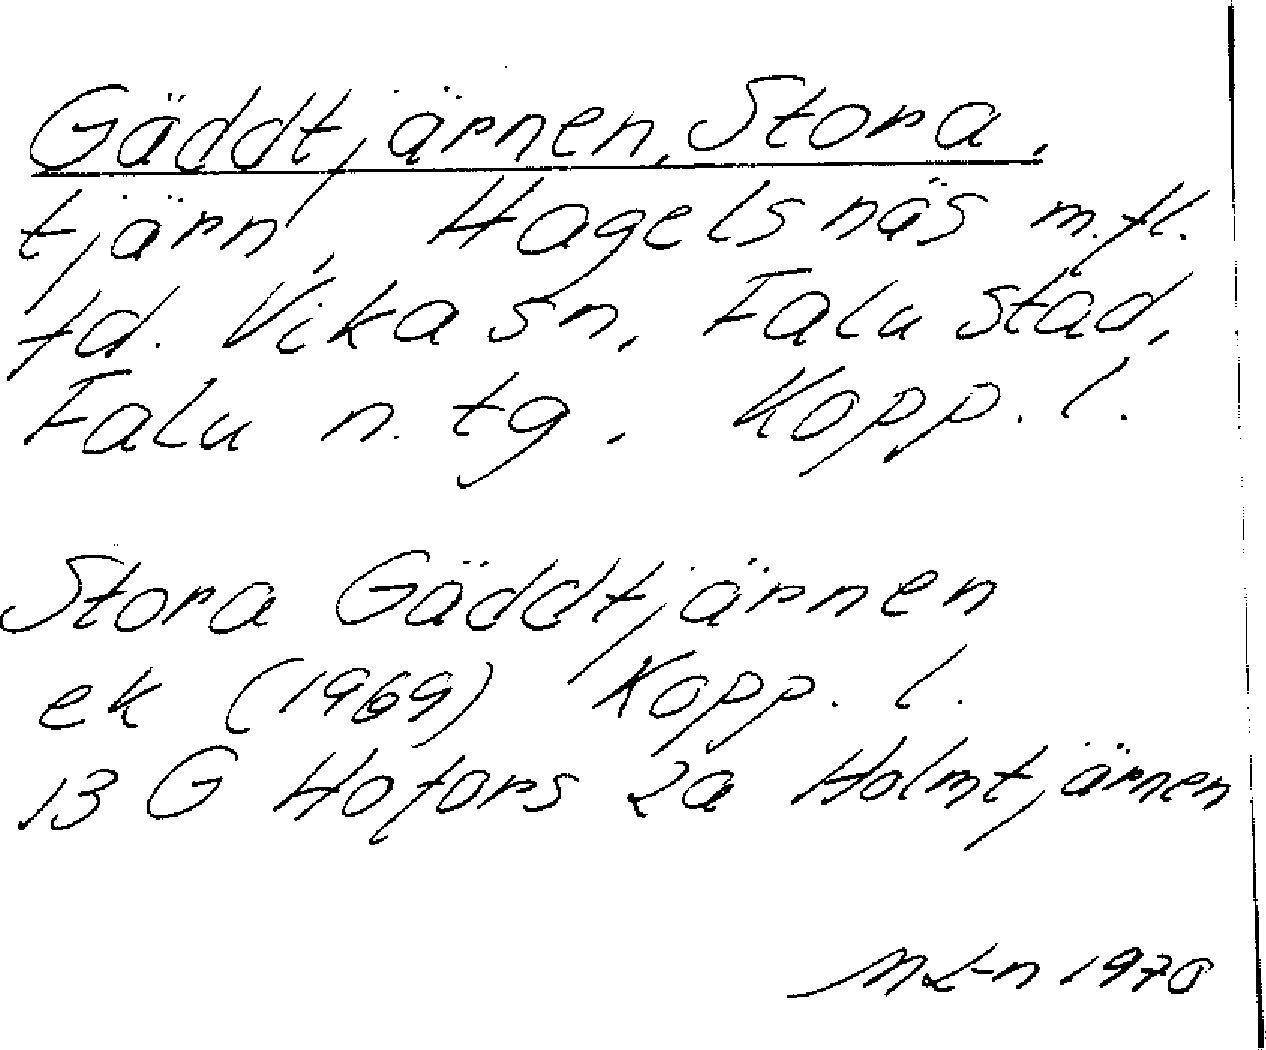 Gäddtjärnen, Stora,
tjärn, Hagelsnäs m.fl.
fd. Vika sn, Falu stad,
Falu n. tg. Kopp. l.
Stora Gäddtjärnen
ek (1969) Kopp. l.
13 G Hofors 2a Holmtjärnen
ML-n 1970